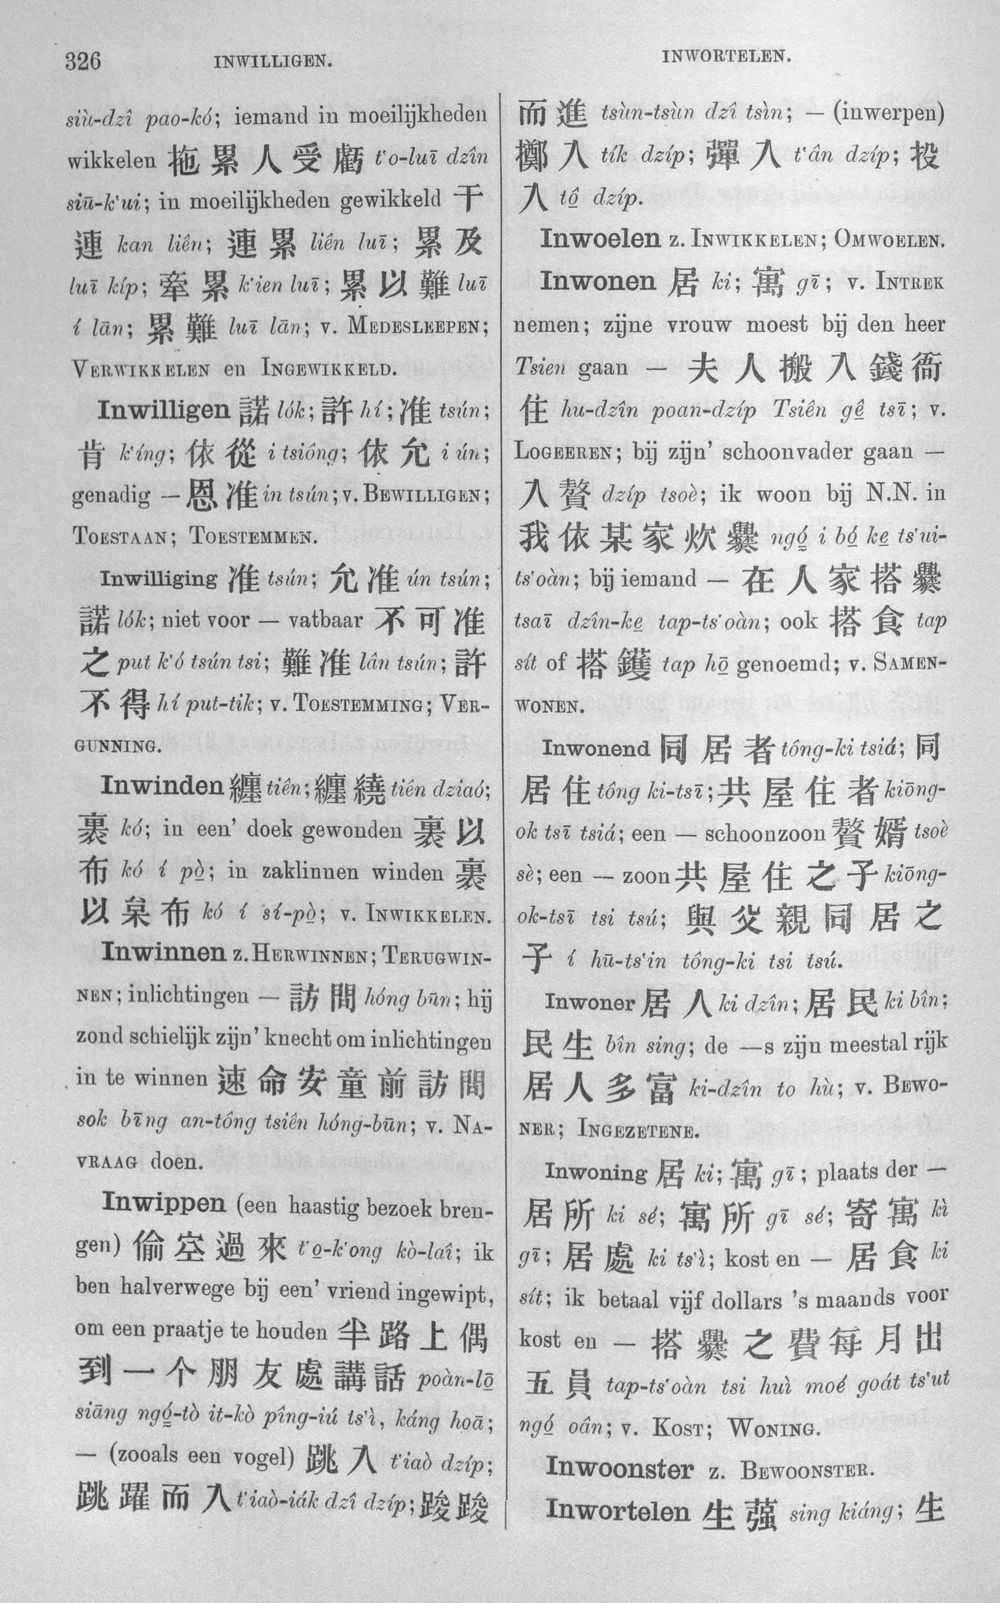 326
INWILLIGEN.
INWORTELEN.
siù-dzî pao-kó; iemand in moeilijkheden
wikkelen 拖累人受虧 t'o-luī dzîn
siū-k'ui; in moeilijkheden gewikkeld 干
連 kan liên; 連累 liên luī; 累及
luī kíp; 牽累 k'ien luī; 累以難 luī
í lān; 累難 luī lān; v. MEDESLEEPEN;
VERWIKKELEN en INGEWIKKELD.
Inwilligen 諾 lók; 許 hí; 准 tsún;
肯 k'íng; 依從 i tsiông; 依允 i ún;
genadig — 恩准 in tsún; v. BEWILLIGEN;
TOESTAAN; TOESTEMMEN.
Inwilliging 准 tsún; 允准 ún tsún;
諾 lók; niet voor — vatbaar 不可准
之 put k'ó tsún tsi; 難准 lân tsún; 許
不得 hí put-tik; v. TOESTEMMING; VER-
GUNNING.
Inwinden 纏 tiên; 纏繞 tiên dziaó;
裹 kó; in een' doek gewonden 裹以
布 kó í pò͘; in zaklinnen winden 裹
以枲布 kó í sí-pò͘; v. INWIKKELEN.
Inwinnen z. HERWINNEN; TERUGWIN-
NEN; inlichtingen — 訪問 hóng būn; hij
zond schielijk zijn' knecht om inlichtingen
in te winnen 速命安童前訪問
sok bīng an-tông tsiên hóng-būn; v. NA-
VRAAG doen.
Inwippen (een haastig bezoek bren-
gen) 偷空過來 t'o̤-k'ong kò-laî; ik
ben halverwege bij een' vriend ingewipt,
om een praatje te houden 半路上偶
到一个朋友處講話 poàn-lō͘
siāng ngó͘-tò it-kò pîng-iú ts'ì, káng hoā;
— (zooals een vogel) 跳入 t'iaò dzíp;
跳躍而入 t'iaò-iák dzî dzíp; 踆踆
而進 tsùn-tsùn dzî tsìn; — (inwerpen)
擲入 tík dzíp; 彈入 t'ân dzíp; 投
入 tô͘ dzíp.
Inwoelen z. INWIKKELEN; OMWOELEN.
Inwonen 居 ki; 寓 gī; v. INTREK
nemen; zijne vrouw moest bij den heer
Tsien gaan — 夫人搬入錢衙
住 hu-dzîn poan-dzíp Tsiên gê̤ tsī; v.
LOGEEREN; bij zijn' schoonvader gaan —
入贅 dzíp tsoè; ik woon bij N.N. in
我依某家炊爨 ngó͘ i bó͘ ke̤ ts'ui-
ts'oàn; bij iemand — 在人家搭爨
tsaī dzîn-ke̤ tap-ts'oàn; ook 搭食 tap
sít of 搭鑊 tap hō͘ genoemd; v. SAMEN-
WONEN.
Inwonend 同居者 tông-ki tsiá; 同
居住 tông ki-tsī; 共屋住者 kiōng-
ok tsī tsiá; een — schoonzoon 贅婿 tsoè
sè; een — zoon 共屋住之子 kiōng-
ok-tsī tsi tsú; 與父親同居之
子 í hū-ts'in tông-ki tsi tsú.
Inwoner 居人 ki dzîn; 居民 ki bîn;
民生 bîn sing; de —s zijn meestal rijk
居人多富 ki-dzîn to hù; v. BEWO-
NER; INGEZETENE.
Inwoning 居 ki; 寓 gī; plaats der —
居所 ki sé; 寓所 gī sé; 寄寓 kì
gī; 居處 ki ts'ì; kost en — 居食 ki
sít; ik betaal vijf dollars 's maands voor
kost en — 搭爨之費每月出
五員 tap-ts'oàn tsi huì moé goát ts'ut
ngó͘ oân; v. KOST; WONING.
Inwoonster z. BEWOONSTER.
Inwortelen 生蔃 sing kiáng; 生